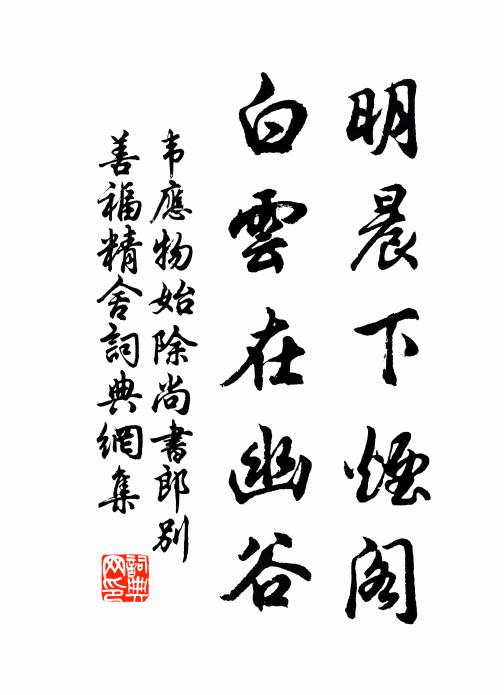 明晨下煙阁
白雲在幽谷
韦應物始除尚書郎别
善福精舍詞典網集
詞典网印